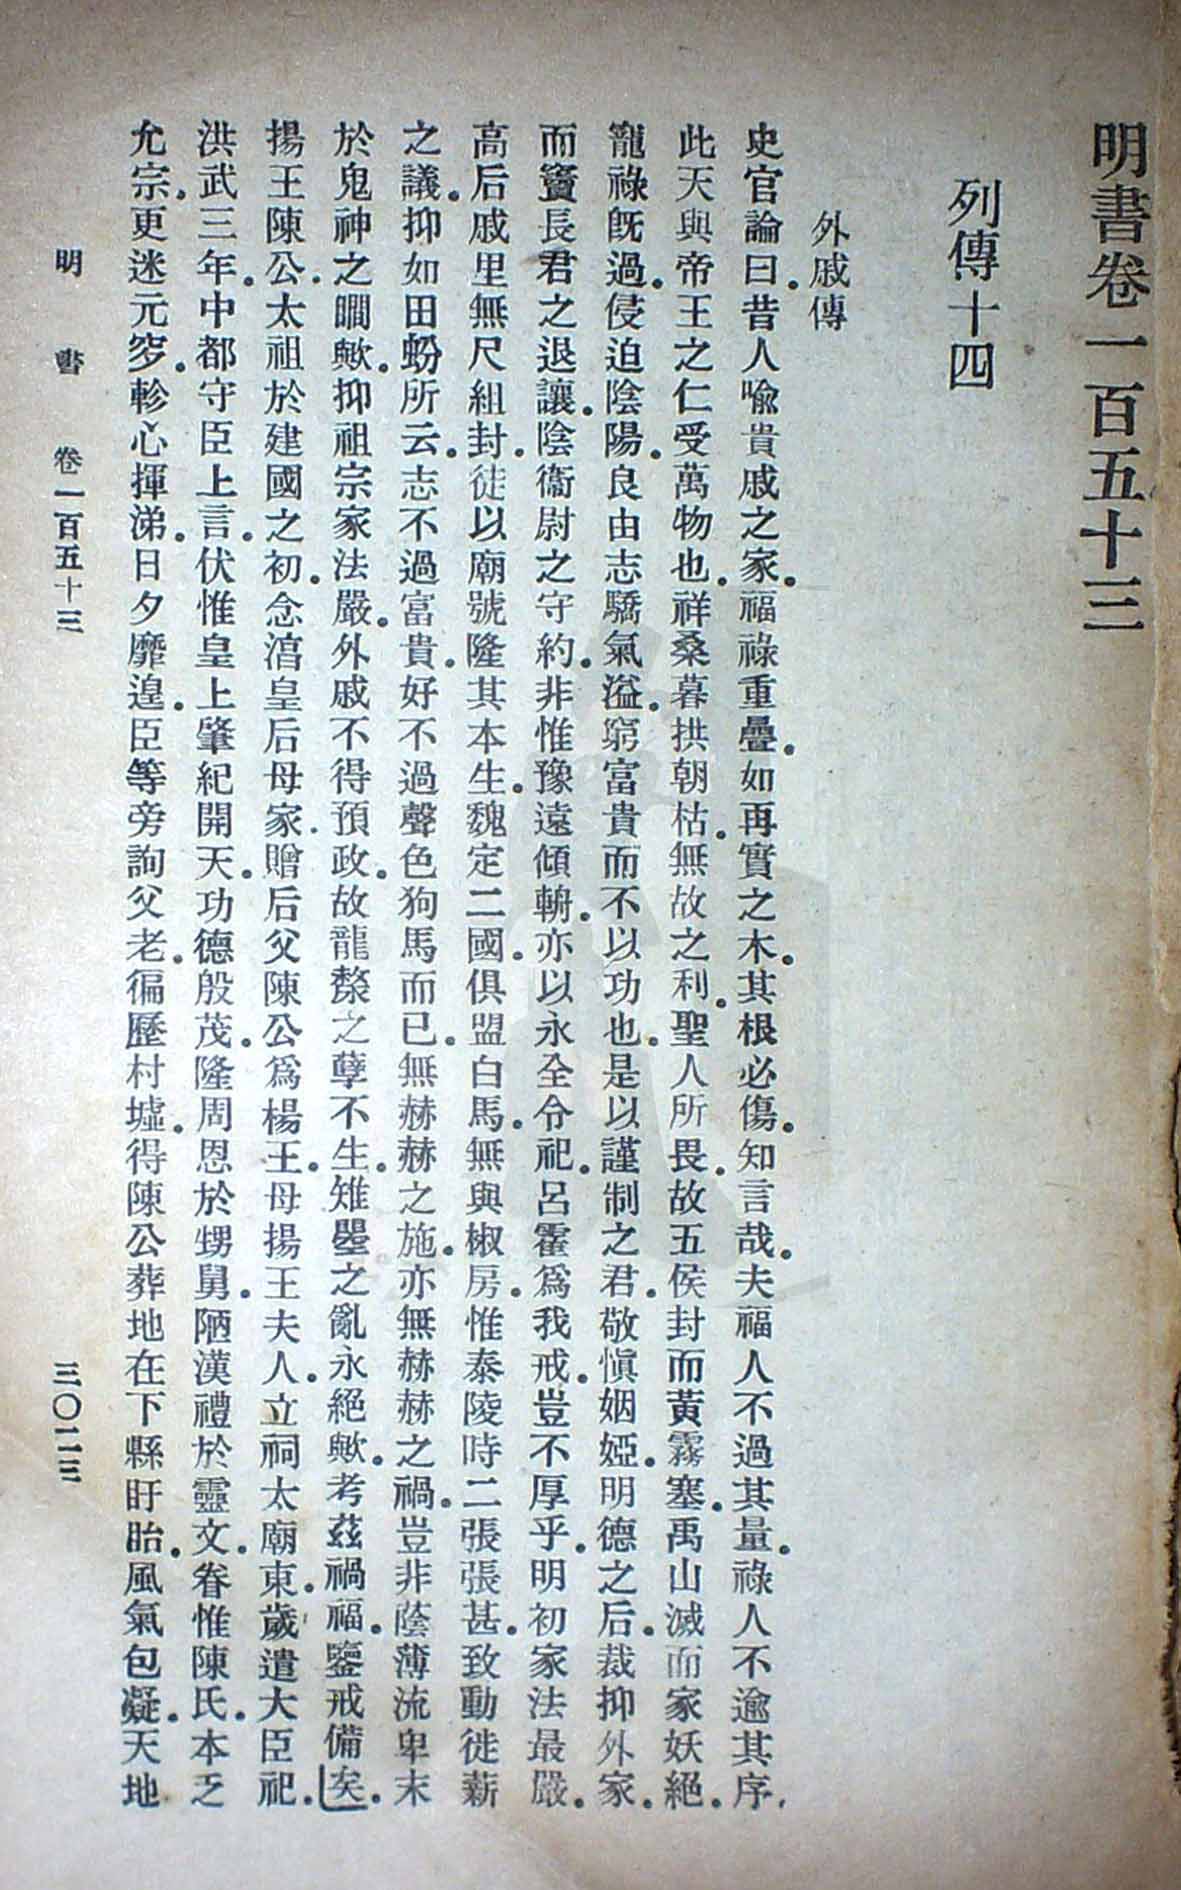 明書卷一百五十三
列傳十四
外戚傳
史官論曰。昔人喻貴戚之家。福祿重疊。如再實之木。其根必傷。知言哉。夫福人不過其量。祿人不逾其序。
此天與帝王之仁受萬物也。祥桑暮拱朝枯。無故之利。聖人所畏。故五侯封而黃霧塞。禹山滅而家妖絕。
寵祿既過。侵迫陰陽。良由志驕氣溢。窮富貴而不以功也。是以謹制之君。敬慎姻婭。明德之后。裁抑外家。
而竇長君之退讓。陰衞尉之守約。非惟豫遠傾輈。亦以永全令祀。呂霍爲我戒。豈不厚乎。明初家法最嚴。
高后戚里無尺組封。徒以廟號隆其本生。魏定二國。俱盟白馬。無與椒房。惟泰陵時二張張甚。致動徙薪
之議。抑如田蚡所云。志不過富貴。好不過聲色狗馬而已。無赫赫之施。亦無赫赫之禍。豈非蔭薄流卑末
於鬼神之瞷歟。抑祖宗家法嚴。外戚不得預政。故龍漦之孽不生。雉曌之亂永絕歟。考茲禍福。鑒戒備矣。
揚王陳公。太祖於建國之初。念湻皇后母家。贈后父陳公爲楊王。母揚王夫人。立祠太廟東。歲遣大臣祀。
洪武三年。中都守臣上言。伏惟皇上肇紀開天。功德殷茂。隆周恩於甥舅。陋漢禮於靈文。眷惟陳氏。本乏
允宗。更迷元穸。軫心揮涕。日夕靡遑。臣等旁詢父老。徧歷村墟。得陳公葬地在下縣盱眙。風氣包凝。天地
明書 卷一百五十三 三〇二三